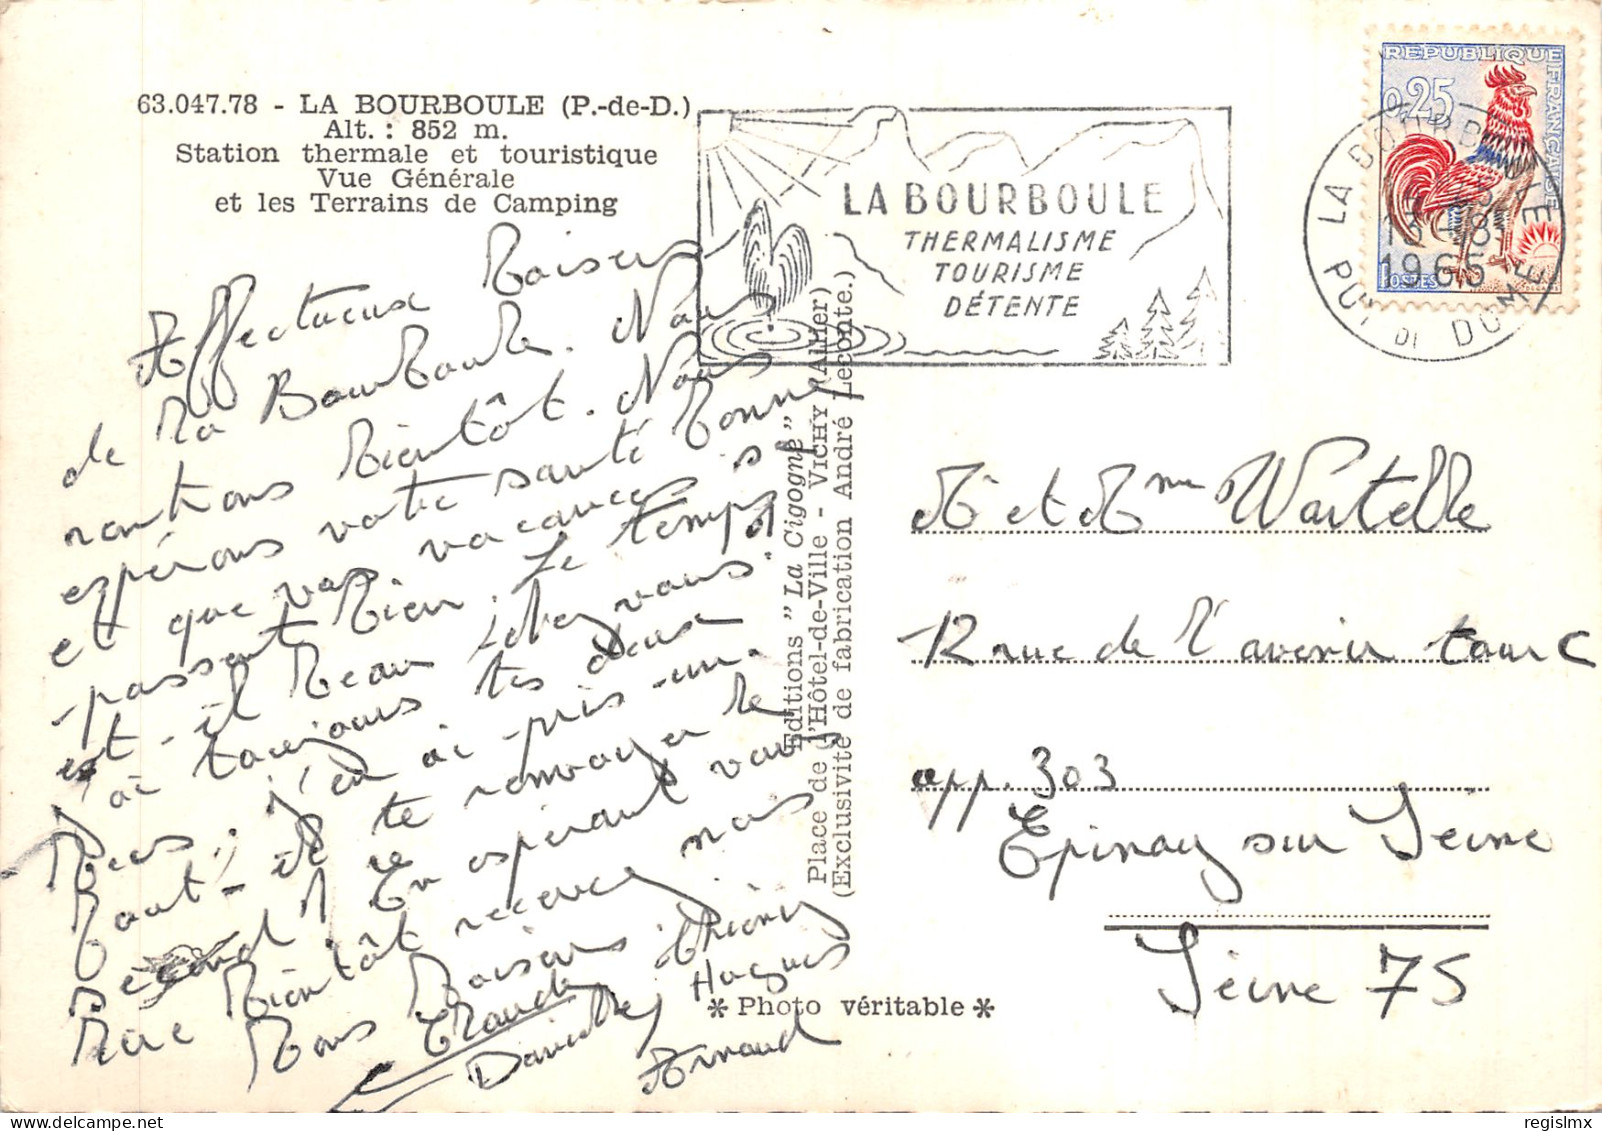 63.047.78 - LA BOURBOULE (P.-de-D.)
Alt. : 852 m.
Station thermale et touristique
Vue Générale
et les Terrains de Camping
Affectueux Baisers
de la Bourboule. Nous
rentrons bientôt. Nous
espérons votre santé bonne
et que vos vacances
passent bien. Le temps
est-il beau
J'ai toujours tes deux
j'en ai pris un.
Faut-il te renvoyer le
second ? En espérant vous
bientôt recevez nos
Bons Baisers Thierry
Claude Hugues
Danielle
Arnaud
Editions " La Cigogne "
Place de l'Hôtel-de-Ville - VICHY (Allier)
(Exclusivité de fabrication André Leconte.)
* Photo véritable *
LA BOURBOULE
THERMALISME
TOURISME
DÉTENTE
REPUBLIQUE FRANÇAISE
0,25
POSTES
LA BOURBOULE
1965
PUY DE DOME
M et Mme Wartelle
12 rue de l'avenir tour C
app. 303
Epinay sur Seine
Seine 75
regislmx